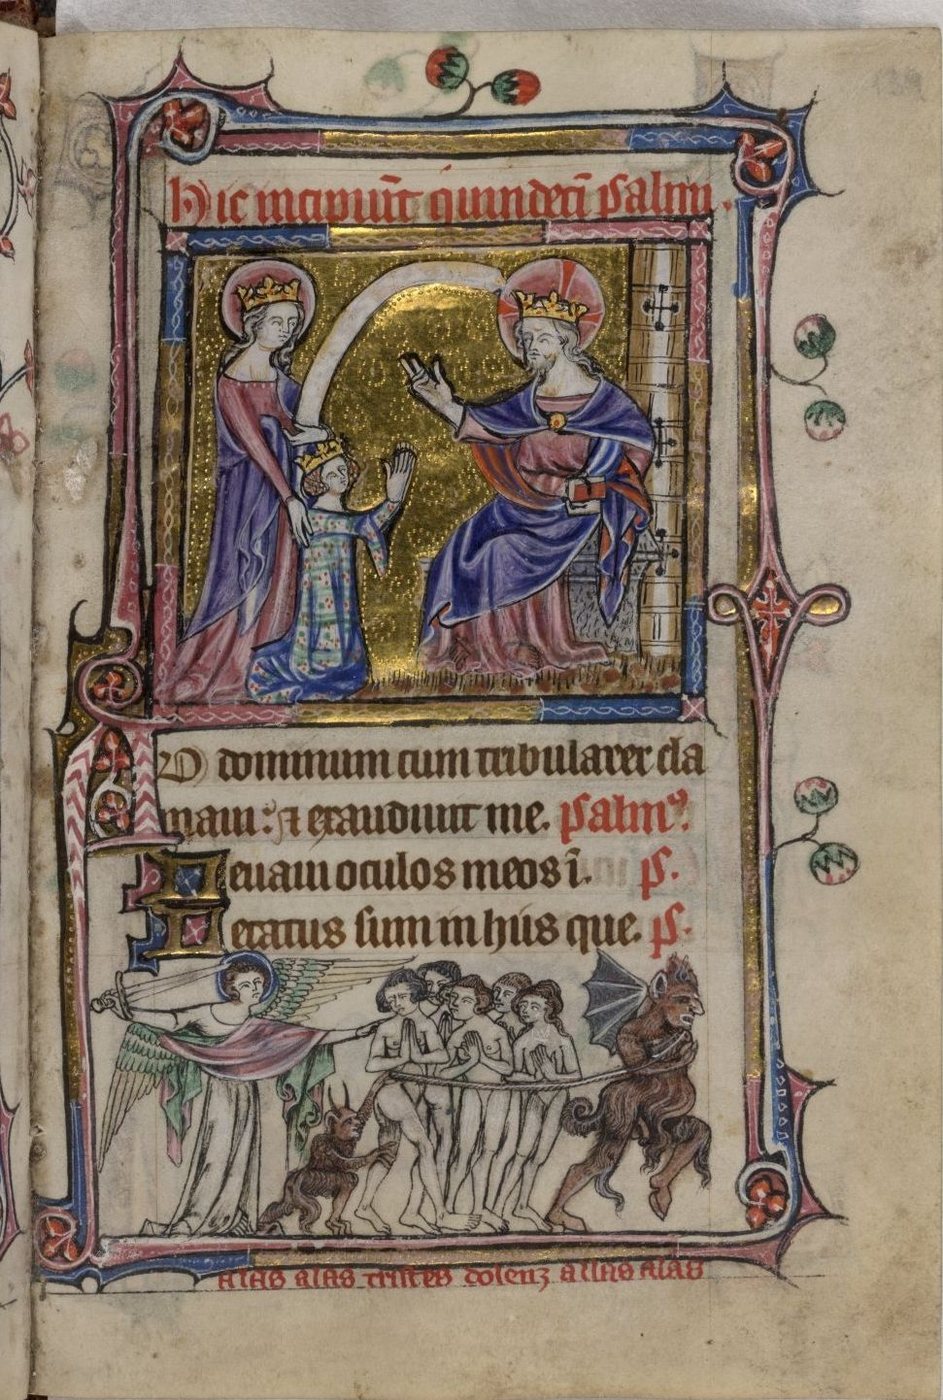 Hic incipiūt quindecī psalmi.
AD dominum cum tribularer cla
maui: ⁊ exaudiuit me. psalmꝰ.
Leuaui oculos meos ī. ps.
Letatus sum in hiis que. ps.
alas alas tristes dolenz allas alas